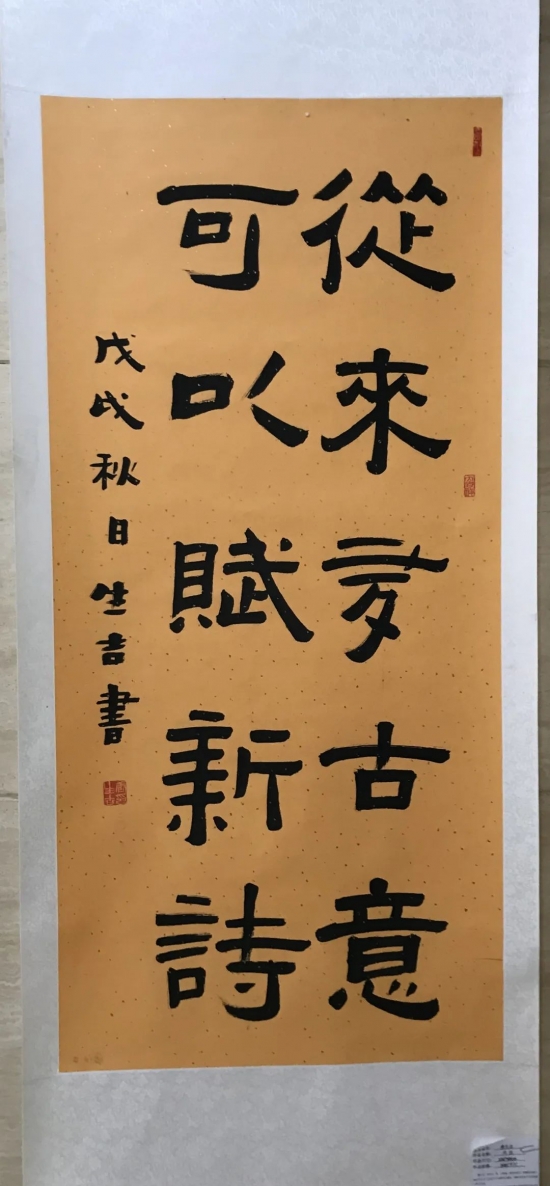 從來多古意
可以賦新詩
戊戌秋日生吉書